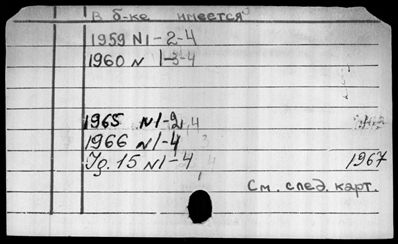 В б-ке имеется
1959 N1-2-4
1960 N 1-3-4
1965 N1-2,4
1966 N1-4
Јց. 15 N1-4 1967
См. след. карт.